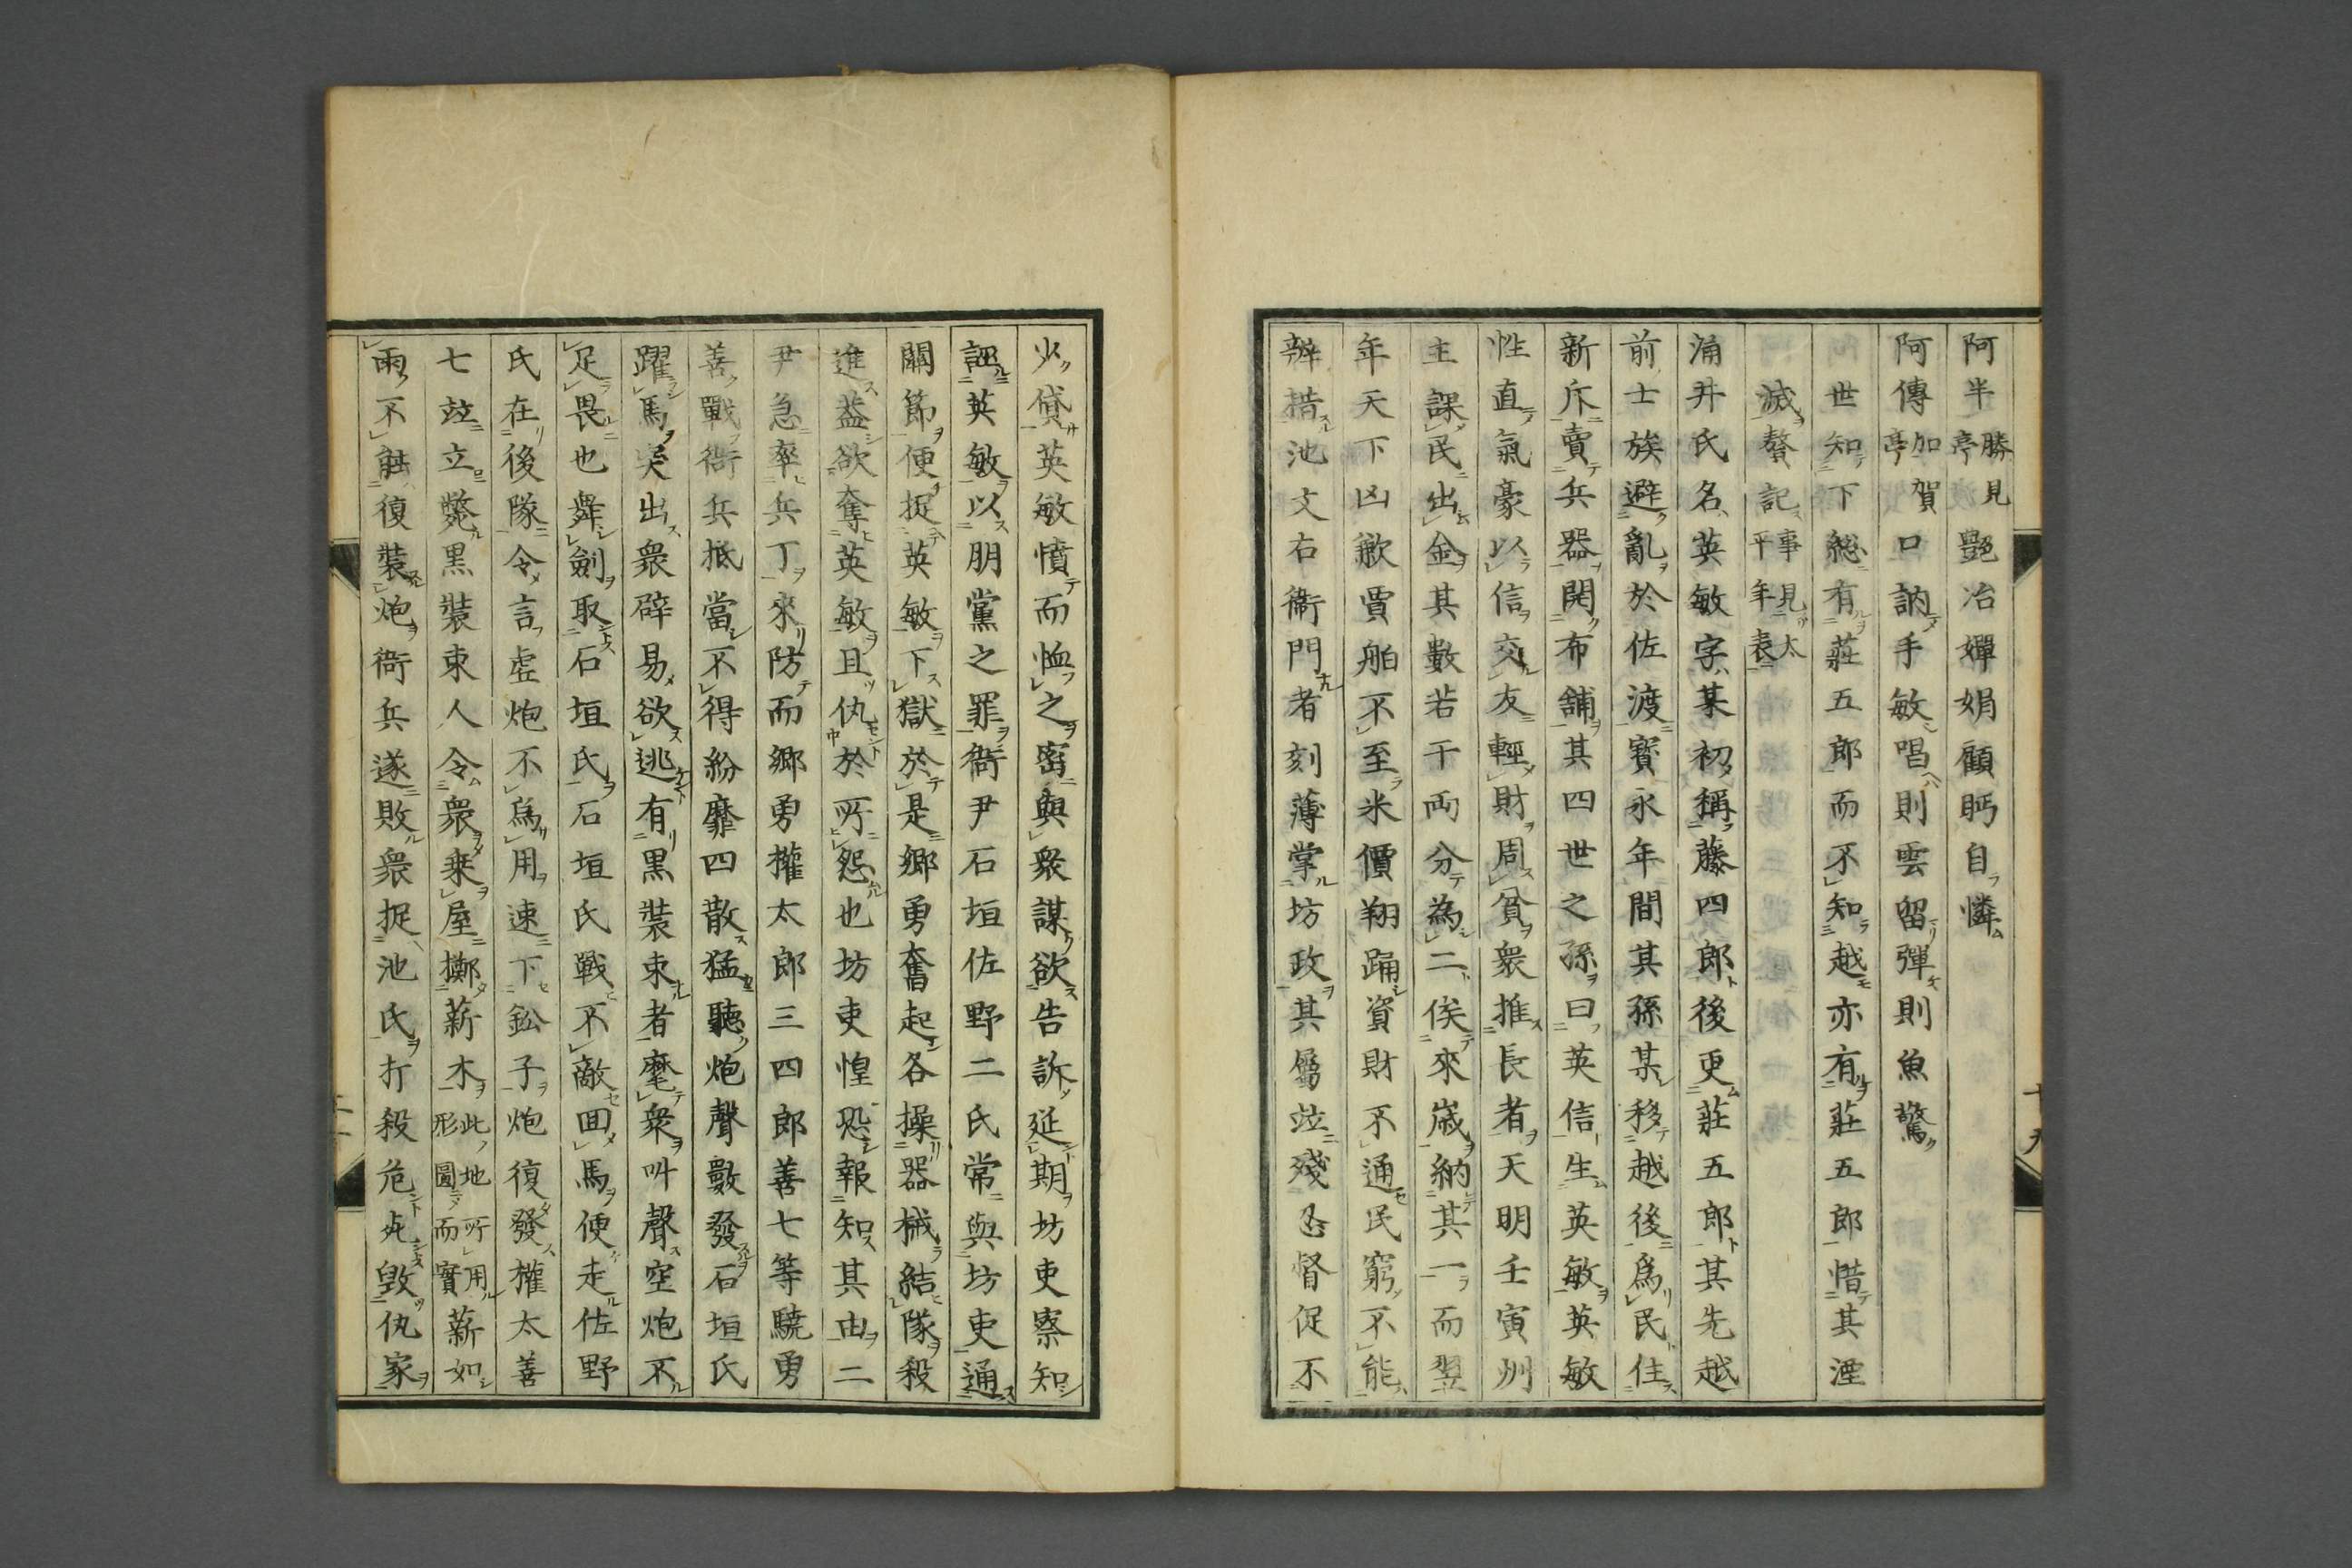 阿半勝見亭艷冶嬋娟顧眄自憐
阿傳加賀亭口訥手敏唱則雲留彈則魚驚
世知下總有莊五郎而不知越亦有莊五郎惜其湮
滅贅記事見太平年表
涌井氏名英敏字某初稱藤四郎後更莊五郎其先越
前士族避亂於佐渡寳永年間其孫某移越後爲民住
新斥賣兵器開布舖其四世之孫曰英信生英敏英敏
性直氣豪以信交友輕財周貧衆推長者天明壬寅州
主課民出金其數若干両分為二俟來嵗納其一而翌
年天下凶歉賈舶不至米價翔踊資財不通民窮不能
辨措池文右衞門者刻薄掌坊政其屬竝殘忍督促不
少貸英敏憤而恤之密與衆謀欲告訴延期坊吏察知
誣英敏以朋黨之罪衙尹石垣佐野二氏常與坊吏通
關節便捉英敏下獄於是郷勇奮起各操器械結隊殺
進葢欲奪英敏且仇於所怨也坊吏惶恐報知其由二
尹急率兵丁來防而郷勇權太郎三四郎善七等驍勇
善戰衙兵抵當不得紛靡四散猛聽炮聲數發石垣氏
躍馬突出衆辟易欲逃有黒裝束者麾衆叫聲空炮不
足畏也舞劍取石垣氏石垣氏戰不敵囬馬便走佐野
氏在後隊令言虚炮不爲用速下鈆子炮復發權太善
七竝立斃黒裝束人令衆乗屋擲薪木此地所用薪形圓而實如
雨不能復裝炮衙兵遂敗衆捉池氏打殺危死毀仇家